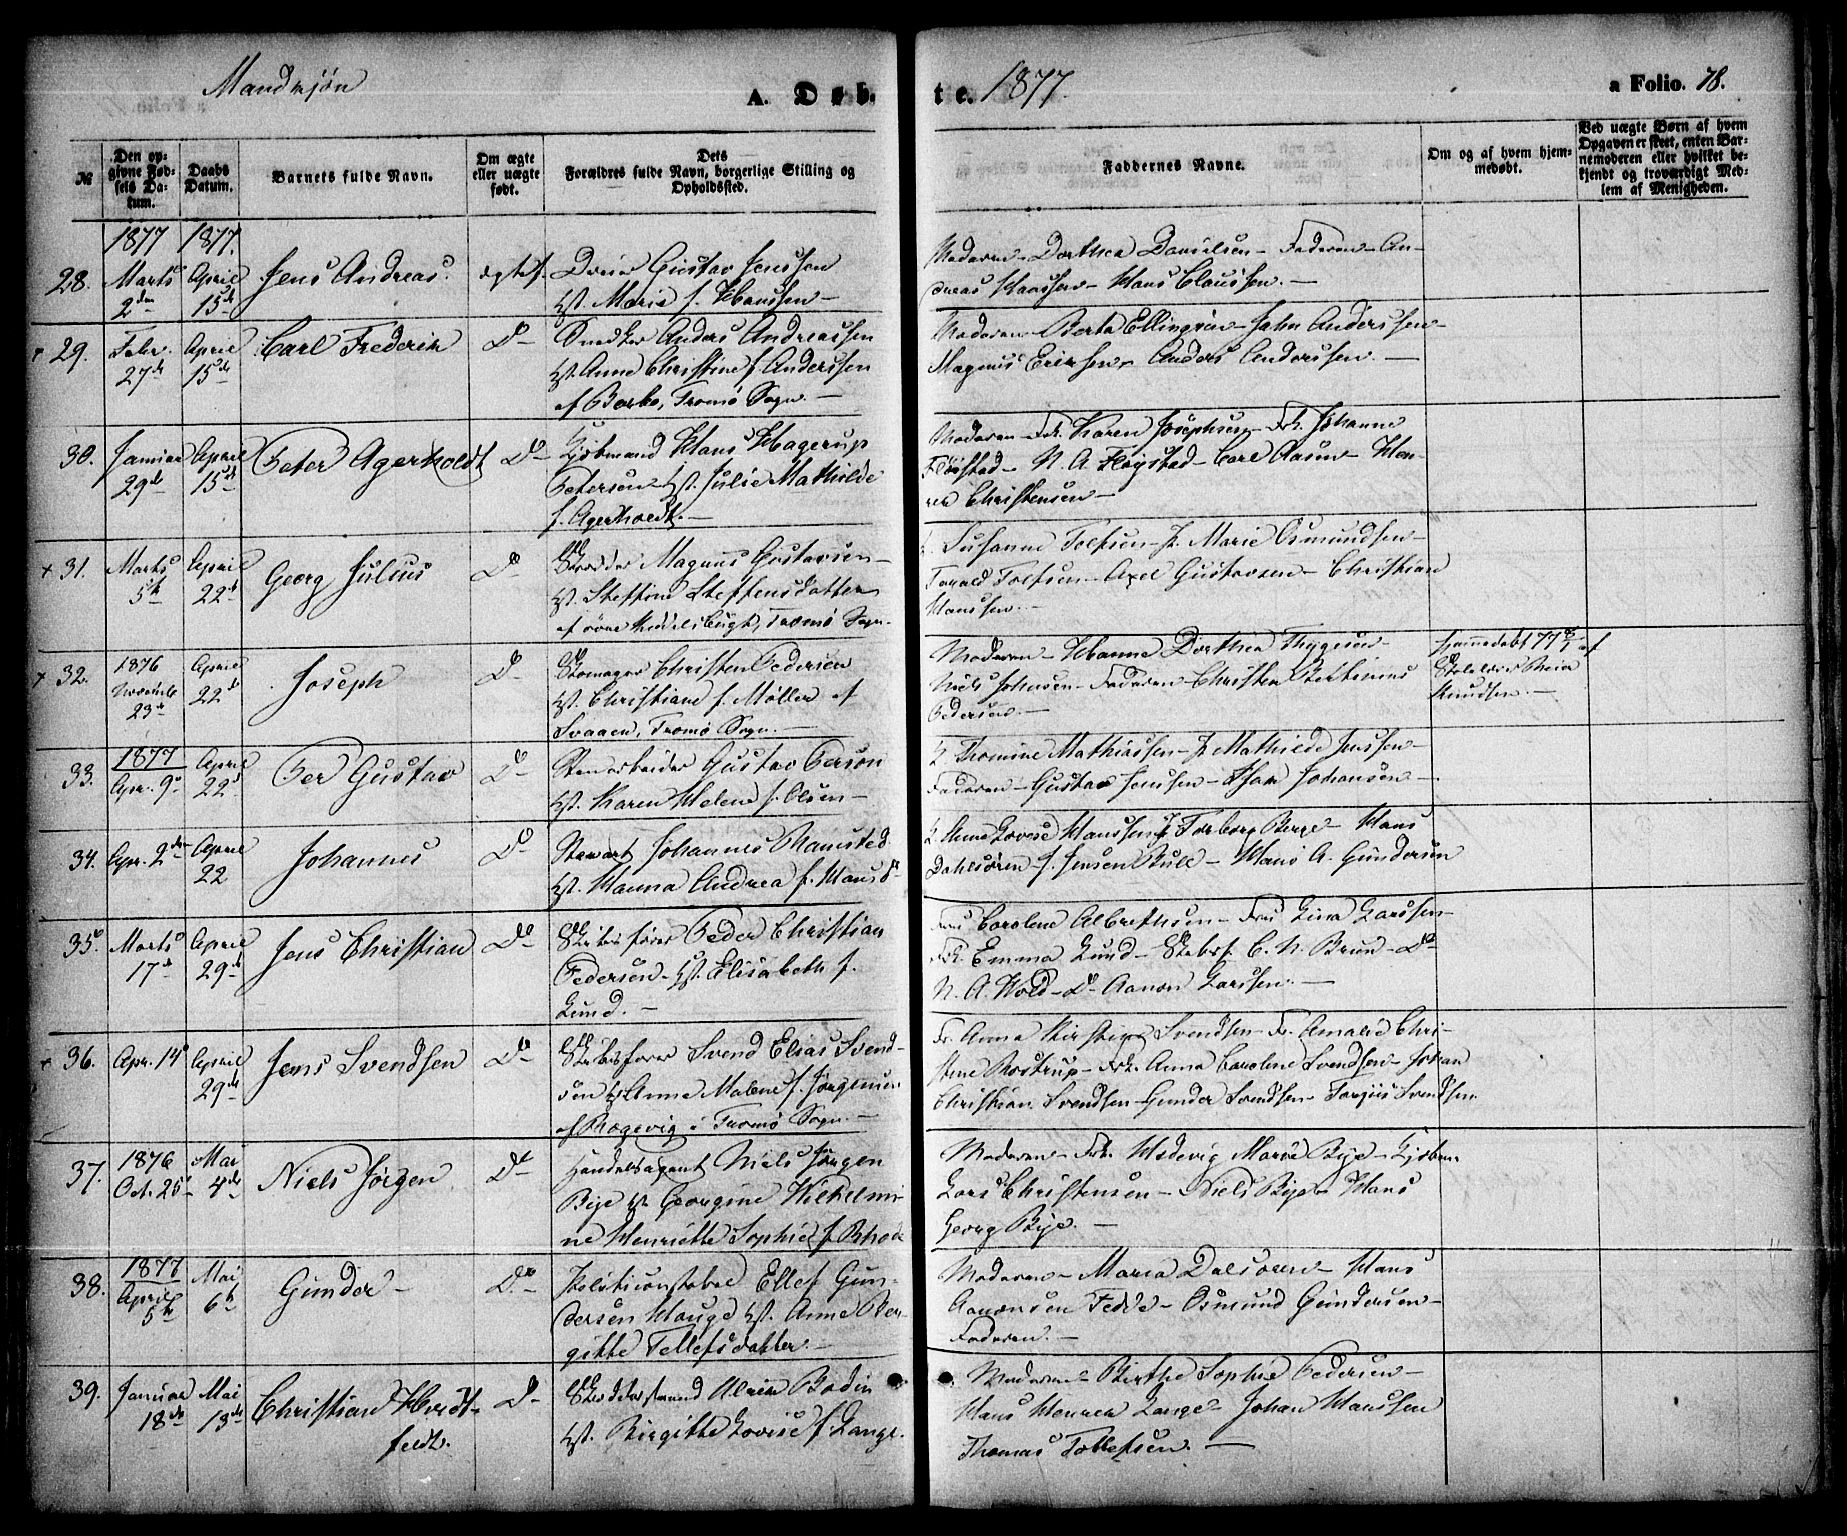 Mandkjøn
A. Døb-
te. 1877.
a Folio. 78.
№
Den op-
givne Fød-
sels Da-
tum.
Daabs
Datum.
Barnets fulde Navn.
Om ægte
eller uægte
født.
Dets
Forældres fulde Navn, borgerlige Stilling og
Opholdssted.
Faddernes Navne.
Om og af hvem hjem-
medøbt.
Ved uægte Børn af hvem
Opgaven er skeet, enten Bar-
nemoderen eller hvilket be-
kjendt og troværdigt Med-
lem af Menigheden.
1877 1877.
28. Marts 2den April 15de Jens Andreas. ægtef. Gustav Jenssen
Hst. Marie f. Hanssen
Moderen Dorthea Danielsen Faderen An-
dreas Hanssen Hans Claussen.
29. Febr. 27de April 15de Carl Frederik Do Snedker Anders Andreassen
Hst. Anne Christine f. Anderssen
af Barbo, Tromø Sogn.
Moderen Berta Ellingsen John Anderssen
Magnus Eriksen Anders Anderssen.
30. Januar 29de April 15de Peter Agerholdt Do Kjøbmand Hans Hagerup
Petersen Hst. Julie Mathilde
f. Agerholdt.
Moderen Frk. Karen Josephsen Frk. Johanne
Fløistad N. A. Fløystad Carl Aasen Hen-
rik Christensen
31. Marts 5te April 22de Georg Julius Do Skrædder Magnus Gustavsen
Hst. Steffine Steffensdatter
af øvre Tromø Sogn.
Susanne Tolfsen Marie Osmundsen
Tarald Tolfsen Axel Gustavsen Christian
Hanssen.
32. 1876 Novembr 23de April 22de Joseph Do Skomager Christen Pedersen
Hst. Christiane f. Møller af
Svaaen, Tromø Sogn.
Moderen Hanne Dorthea Thygesen
Niels Johnsen Faderen Christen Bertinius
Pedersen.
Hjemmedøbt 77 af
Knudsen.
33. 1877 Apr. 9de April 22de Per Gustav Do Stenarbeider Gustav Person
Hst. Karen Helene f. Olsen
Thomine Mathiassen Mathilde Jenssen
Faderen Gustav Jenssen Johansen
34. Apr. 2den April 22 Johannes Do Stewart Johannes Ramsted
Hst. Hanna Andrea f. Hans
Anne Lovise Hanssen Torborg Berge Hans
Dahlsøren J. Jensen Bull Hans A. Gundersen
35. Marts 17de April 29de Jens Christian Do Skibsfører Peder Christian
Pedersen Hst. Elisabeth f.
Lund.
Fru Caroline Albrethsen Fru Lina Larssen
Frk. Emma Lund Skibsf. C. N. Bruun Do
N. A. Wold Do Aanon Larssen.
36. Apr. 14de April 29de Jens Svendsen Do Skibsfører Svend Elias Svend-
sen Hst Anna Malene f. Jørgensen
af Rægevig i Tromø Sogn.
Fr. Anna Kirstine Svendsen Fr. Amalie Chri-
stine Rostrup Frk. Anna Caroline Svendsen Johan
Christian Svendsen Gunder Svendsen Torjus Svendsen
37. 1876 Oct. 25de Mai 4de Niels Jørgen Do Handelsagent Niels Jørgen
Bye Hst Georgine Wilhelmi-
ne Henriette Sophie f. Rhode
Moderen Frk. Hedevig Marie Bye Kjøbm.
Lars Christensen Niels Bye Hans
Georg Bye.
38. 1877 April 5te Mai 6te Gunder Do Politiconstabel Ellef Gun-
dersen Hauge Hst. Anne Ber-
gitte Tellefsdatter.
Moderen Maria Dalsøren Hans
Aanonsen Fedde Osmund Gundersen
Faderen.
39. Januar 18de Mai 13de Christian Hvidt-
feldt. Do Alrik Bodin
Hst. Birgitte Lovise f. Lange.
Moderen Birthe Sophie Pedersen
Hans Henrik Lange Johan Hanssen
Thomas Tollefsen.